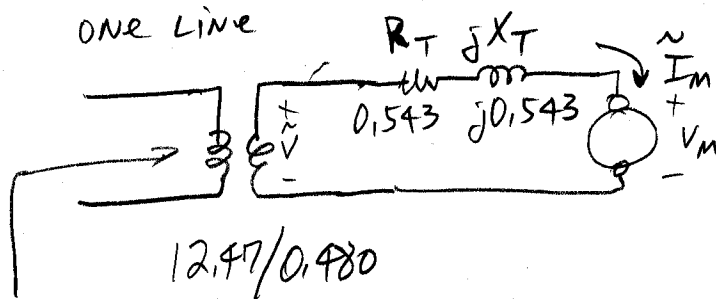 ONE LINE
R_T jX_T
Ĩ_M
+
Ṽ
-
0,543 j0,543
+
V_M
-
12,47/0,480